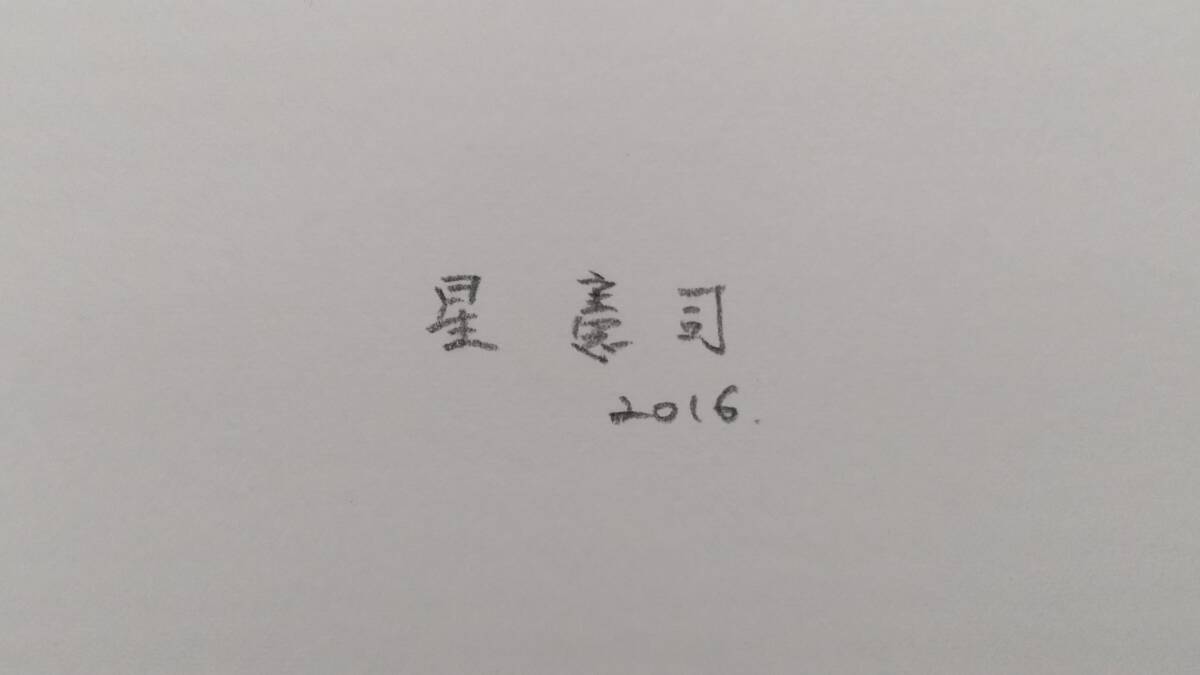 星 憲司
2016.